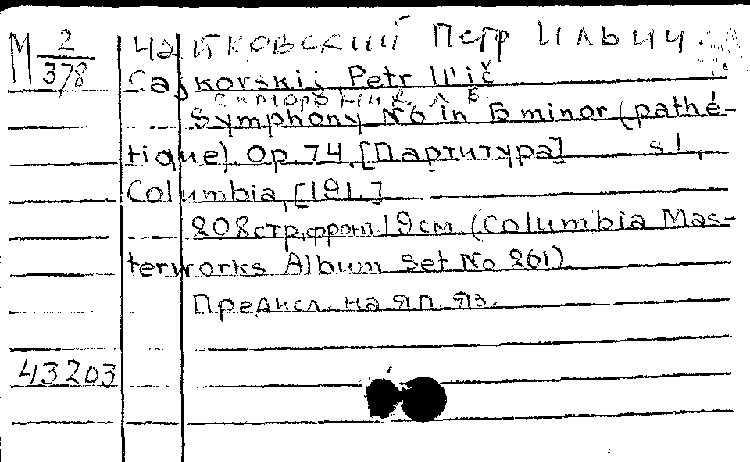 М 2/378
Чайковский Петр Ильич.
Čajkovskij Petr Il'ič
Symphony No 6 in B minor (pathé-
tique). Op. 74. [Партитура] s.l.,
Columbia, [191.]
208 стр., фронт. 19 см. (Columbia Mas-
terworks Album Set No 261)
Предисл. на яп. яз.
43203